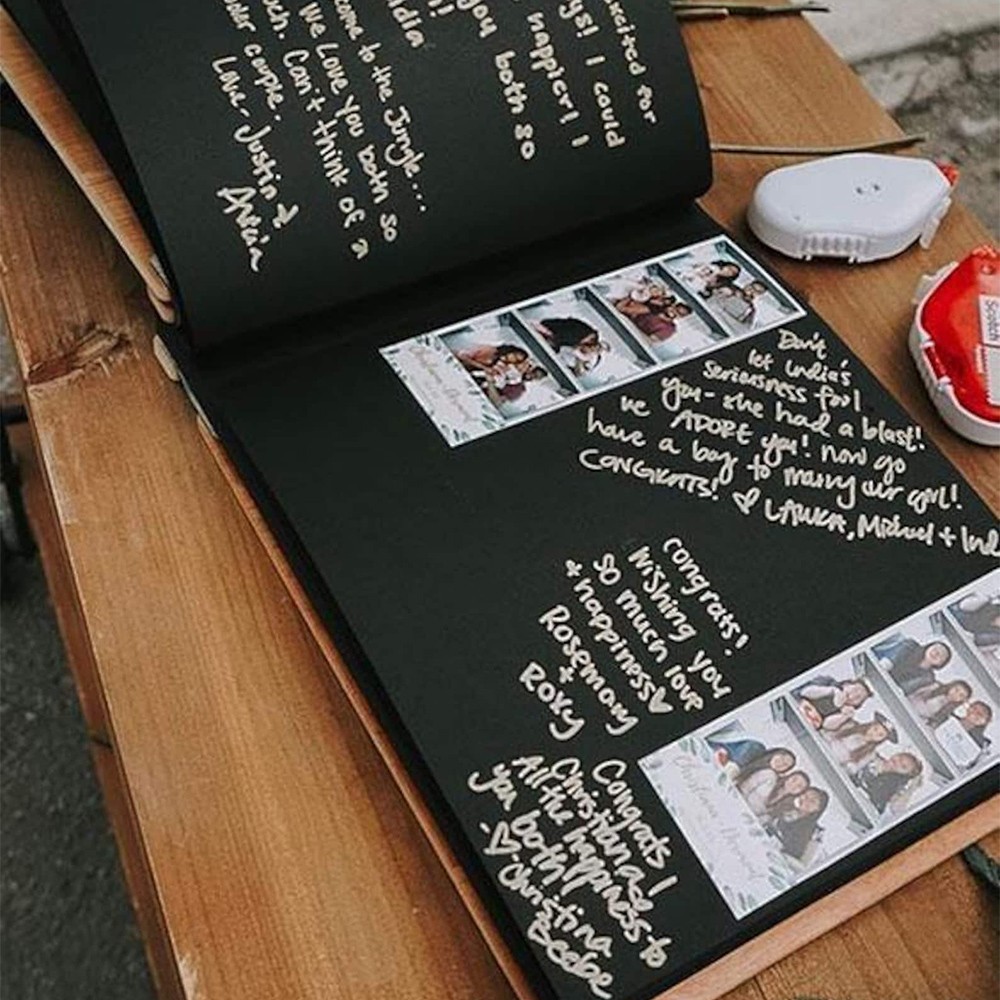 for
I could
happier! I
you both so
to the Jungle....
We love you both so
Can't think of a
couple.
Love- Justin &
Don't
let India's
seriousness fool
you- she had a blast!
we ADORE you! now go
have a boy to marry our girl!
CONGRATS! ♡ LAURA, Michael +
congrats!
wishing you
so much love
+ happiness♥
Rosemary
+
Roxy
Congrats
All the happiness to
you both!
♡- Christina
Beebe
Scotch